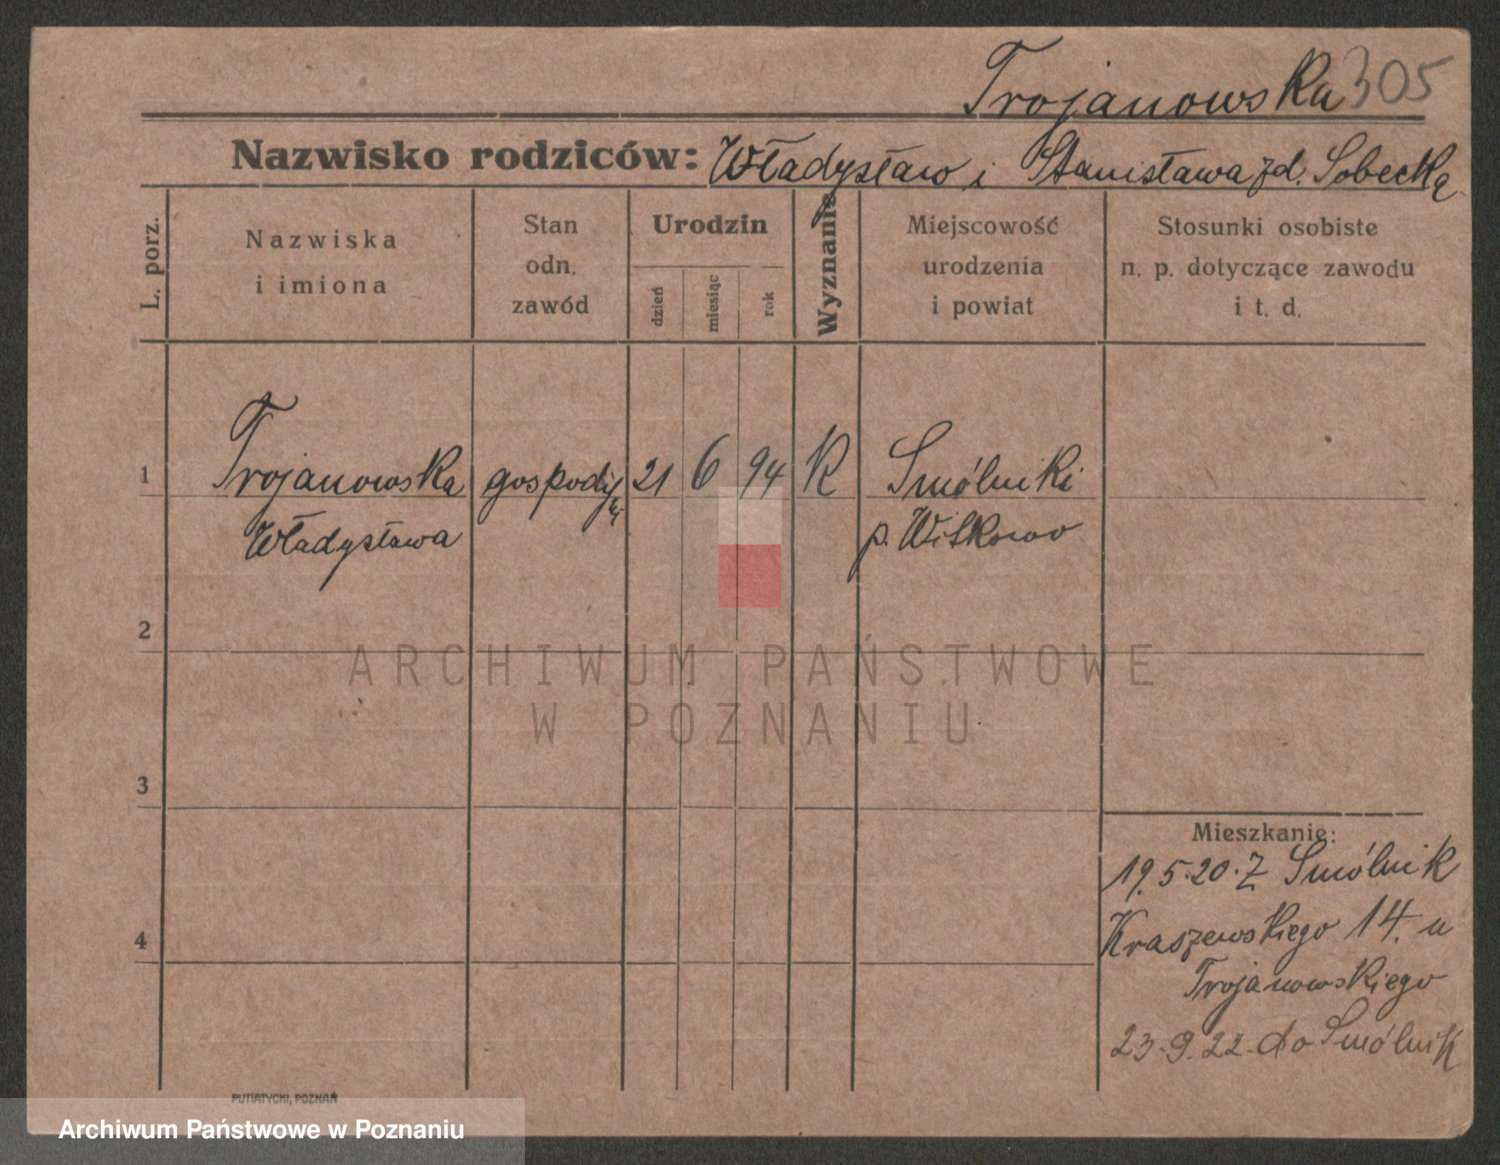 Trojanowska 305
Nazwisko rodziców: Władysław i Stanisława zd. Sobecka
L. porz.
Nazwiska
i imiona
Stan
odn.
zawód
Urodzin
dzień
miesiąc
rok
Wyznanie
Miejscowość
urodzenia
i powiat
Stosunki osobiste
n. p. dotyczące zawodu
i t. d.
1
Trojanowska
Władysława
21 6 94 K
Smólniki
p. Witkowo
2
ARCHIWUM PAŃSTWOWE
W POZNANIU
3
Mieszkanie:
19.5.20. Z Smólnik
4
Kraszewskiego 14. u
Trojanowskiego
23.9.22. do Smólnik
PUTIATYCKI, POZNAŃ
Archiwum Państwowe w Poznaniu